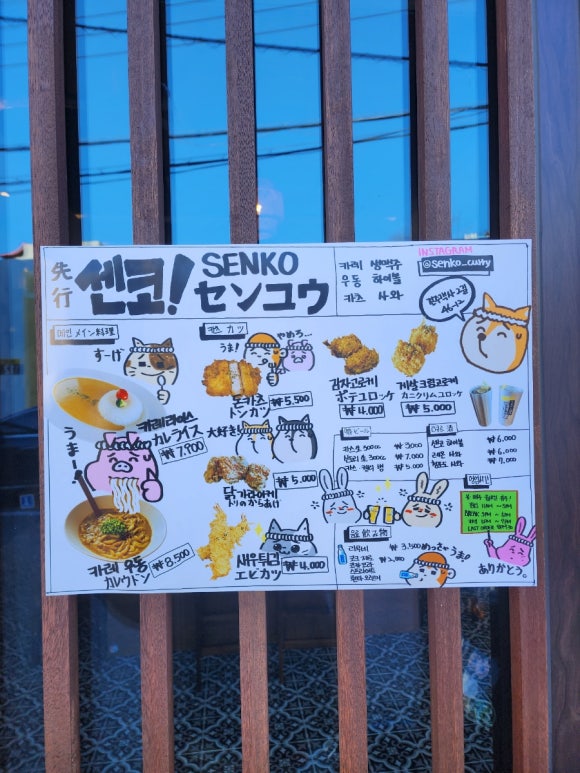 先行
센코!
SENKO
センコウ
카레 생맥주
우동 하이볼
카츠 사와
INSTAGRAM
@senko_curry
메인 メイン料理
すーげ
카레라이스
カレライス
₩7,900
うまー
카레 우동
カレウドン
₩8,500
카츠 カツ
うま!
やめろ...
돈카츠
トンカツ
₩5,500
大好き
닭 가라아게
トリのからあげ
₩5,000
새우튀김
エビカツ
₩4,000
감자고로케
ポテコロッケ
₩4,000
게살크림고로케
カニクリムコロッケ
₩5,000
ビール
₩7,000
₩5,000
하이볼
₩6,000
₩6,000
₩7,000
飲み物
₩3,500
めっちゃうま!
ありがとう。